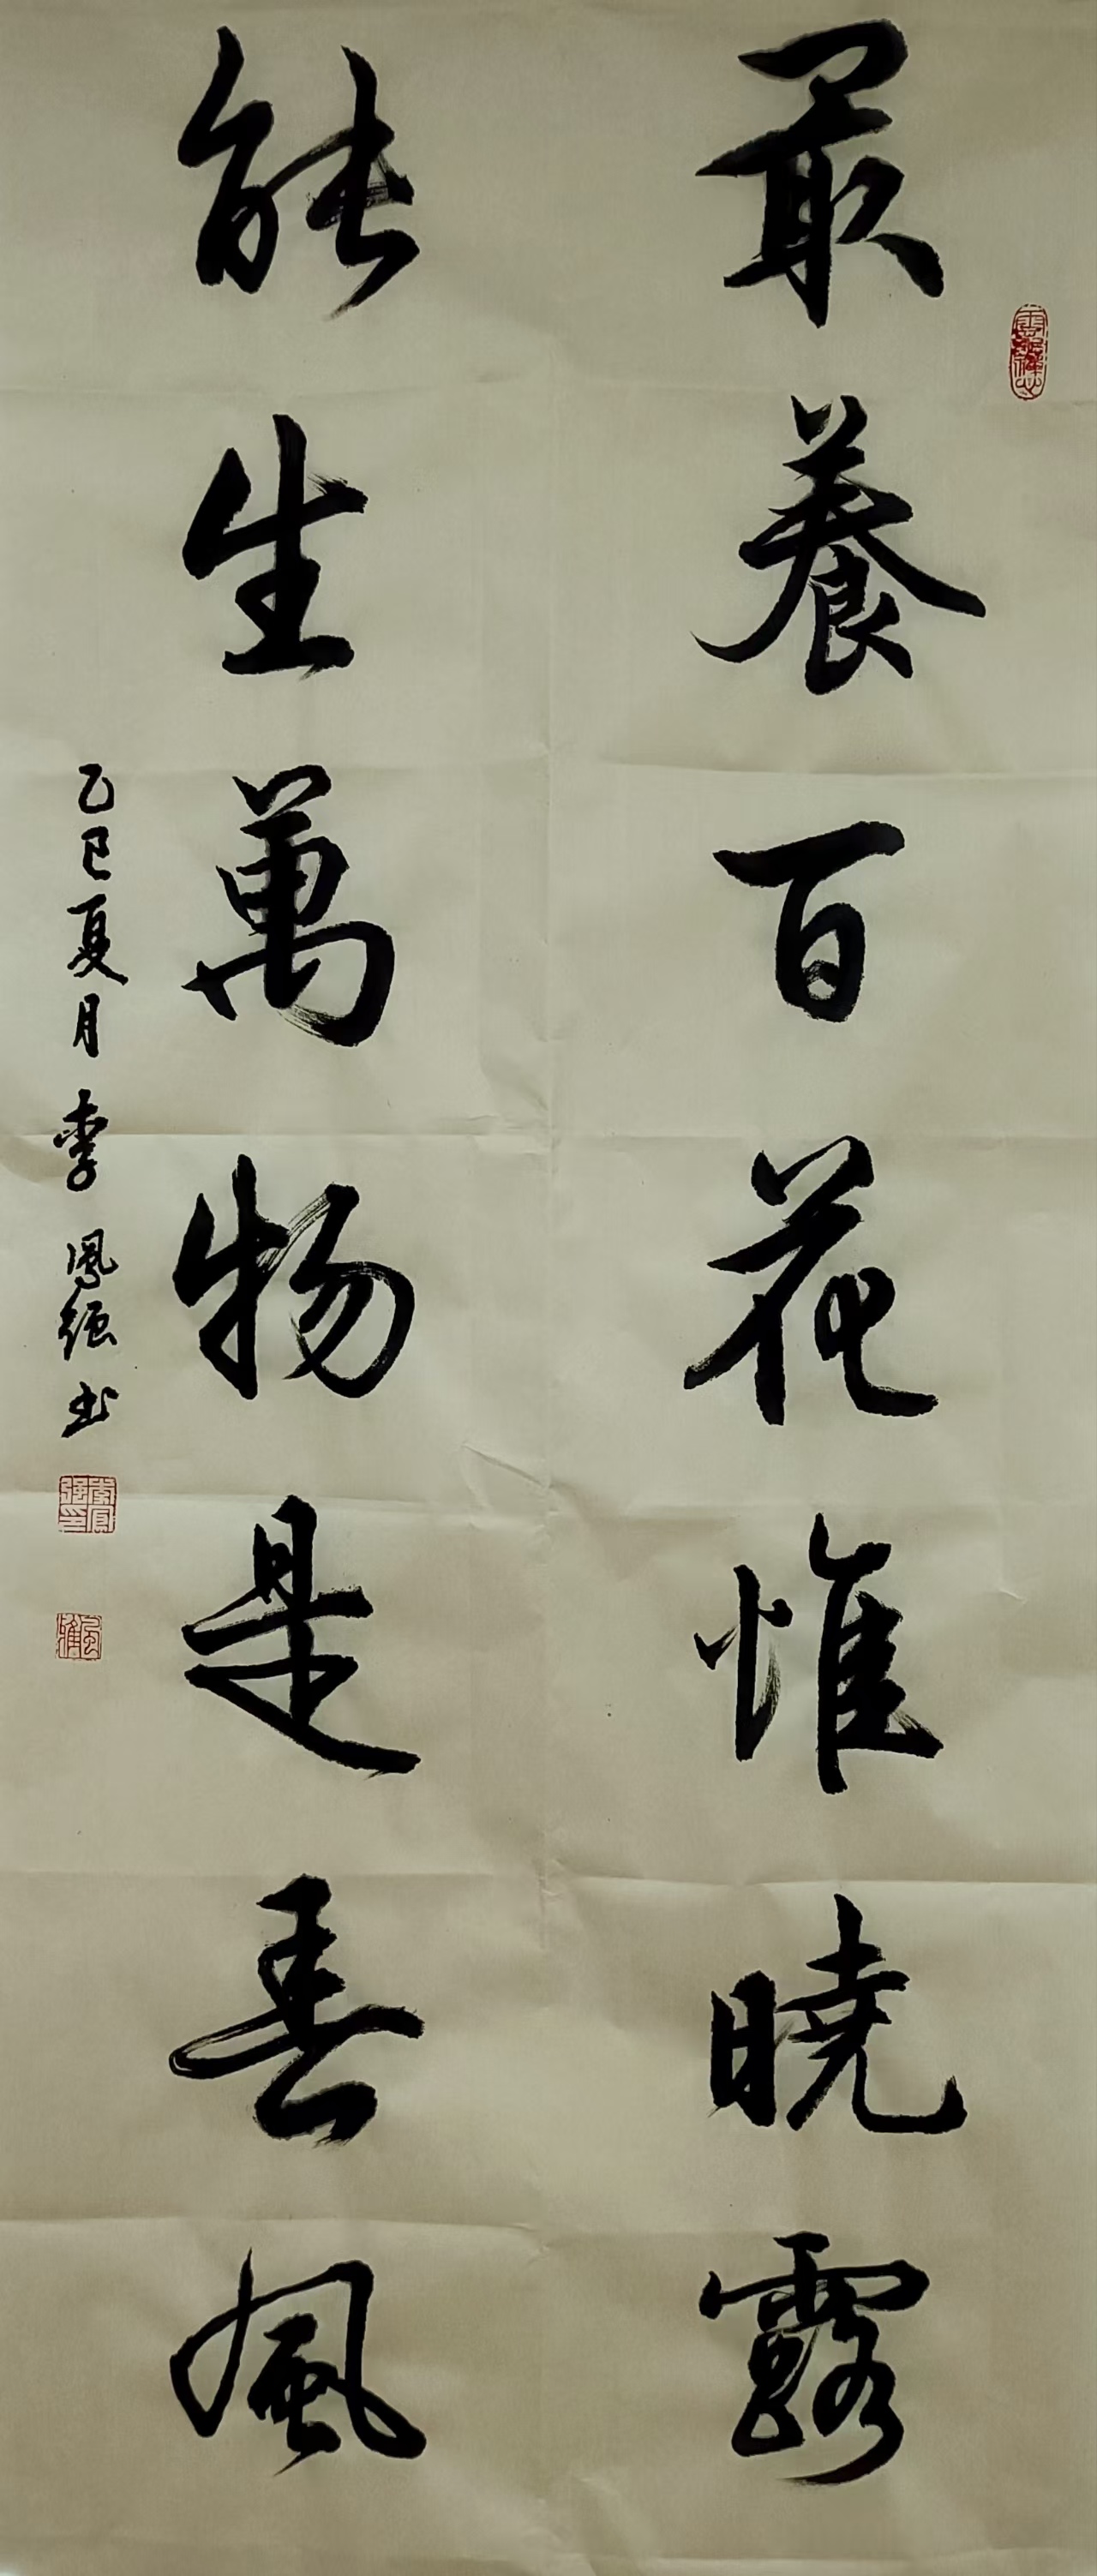 最養百花惟曉露
能生萬物是春風
乙巳夏月 李鳳強书
李鳳強印